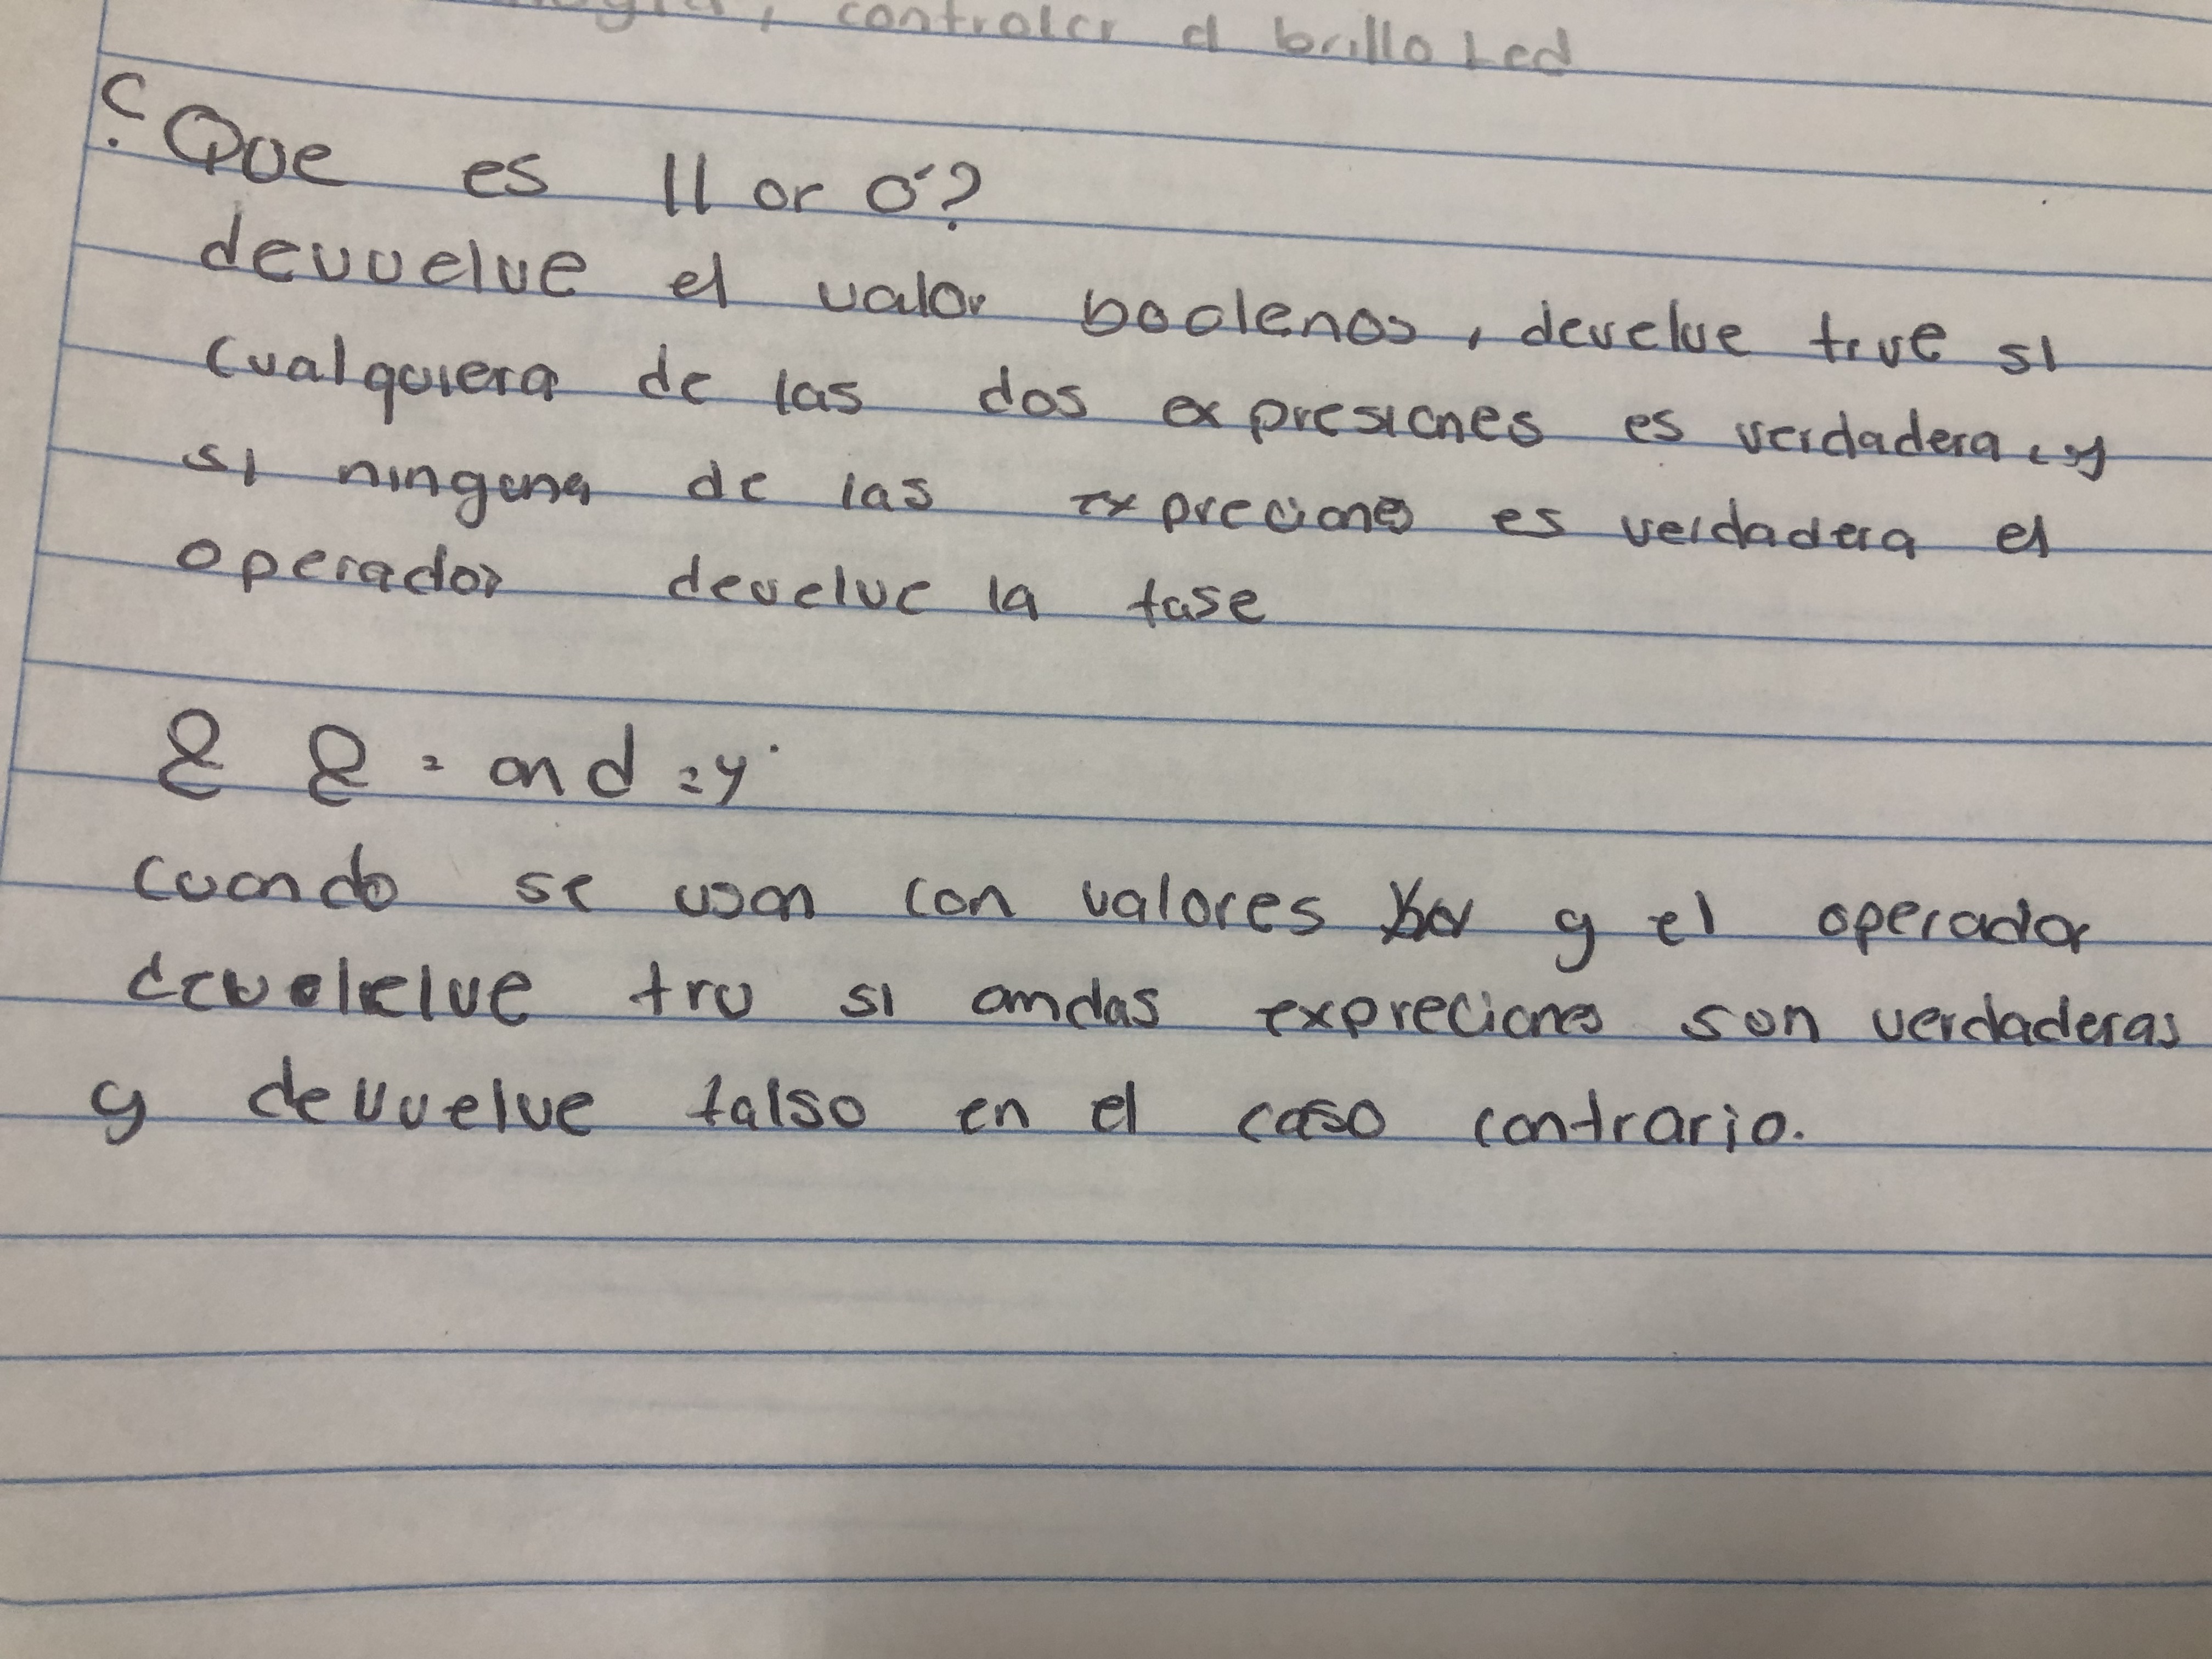 , controlar el brillo Led
¿Que es || or ó?
devuelve el valor boolenos, develve true si
cualquiera de las dos expresiones es verdadera, y
si ninguna de las expreciones es verdadera el
operador develve la fase
&& = and = y
cuando se usan con valores y el operador
tru si amdas expreciones son verdaderas
y devuelve falso en el caso contrario.